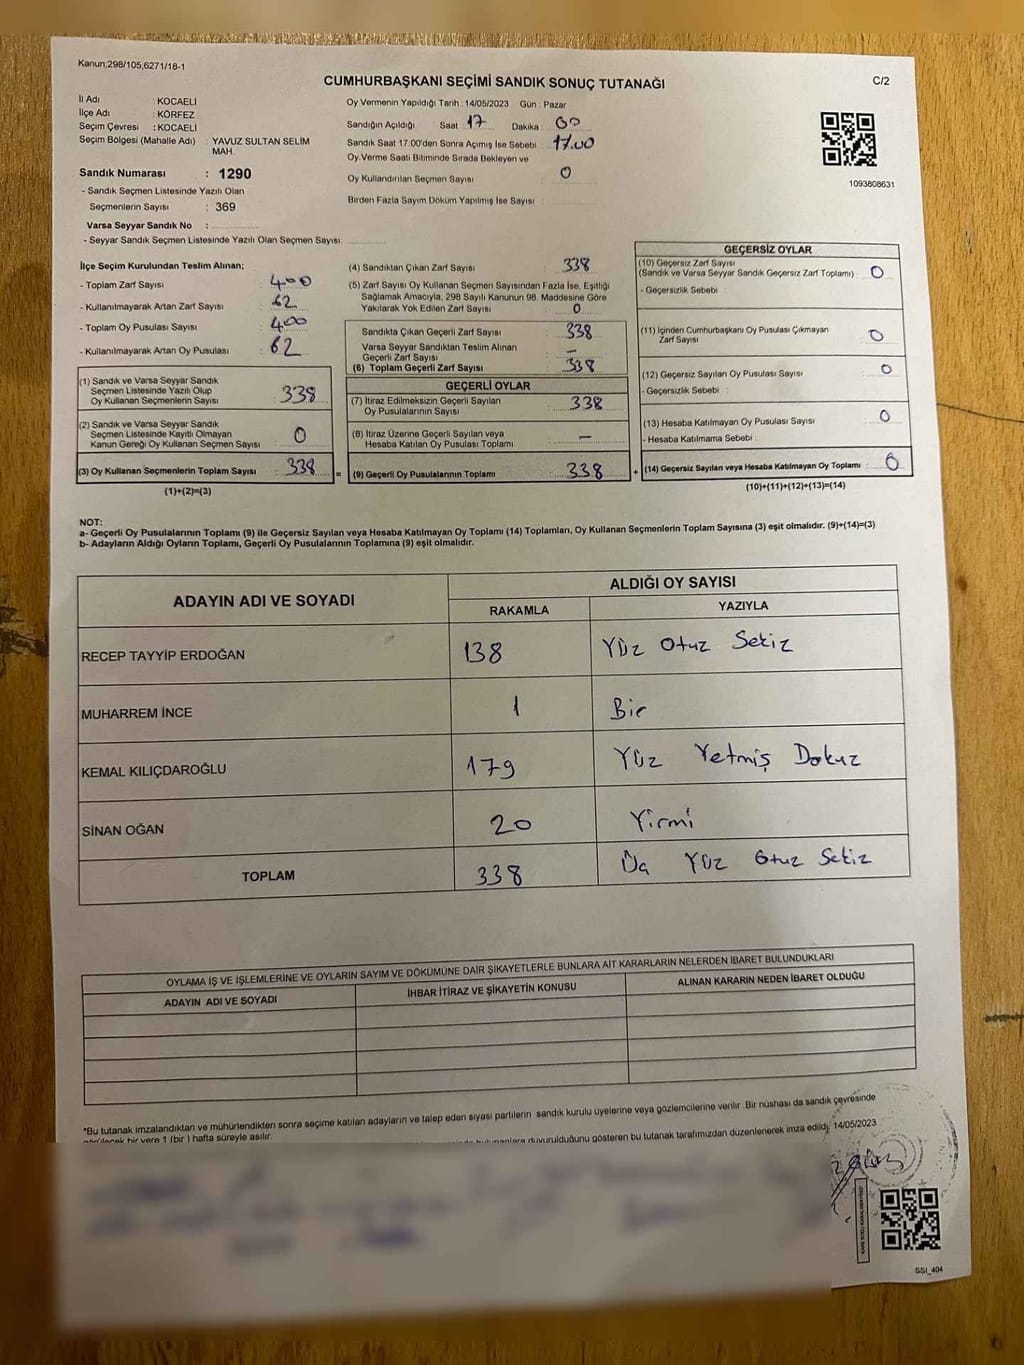 Kanun;298/105,6271/18-1
CUMHURBAŞKANI SEÇİMİ SANDIK SONUÇ TUTANAĞI
C/2
İl Adı : KOCAELİ
İlçe Adı : KÖRFEZ
Seçim Çevresi : KOCAELİ
Seçim Bölgesi (Mahalle Adı) : YAVUZ SULTAN SELİM
MAH.
Sandık Numarası : 1290
- Sandık Seçmen Listesinde Yazılı Olan
Seçmenlerin Sayısı : 369
Varsa Seyyar Sandık No :
- Seyyar Sandık Seçmen Listesinde Yazılı Olan Seçmen Sayısı:
Oy Vermenin Yapıldığı Tarih :14/05/2023 Gün : Pazar
Sandığın Açıldığı Saat 17 Dakika 00
Sandık Saat 17:00'den Sonra Açımış İse Sebebi : 17.00
Oy Verme Saati Bitiminde Sırada Bekleyen ve
Oy Kullandırılan Seçmen Sayısı : 0
Birden Fazla Sayım Döküm Yapılmış İse Sayısı :
1093808631
İlçe Seçim Kurulundan Teslim Alınan;
- Toplam Zarf Sayısı : 400
- Kullanılmayarak Artan Zarf Sayısı : 62
- Toplam Oy Pusulası Sayısı : 400
- Kullanılmayarak Artan Oy Pusulası : 62
(1) Sandık ve Varsa Seyyar Sandık
Seçmen Listesinde Yazılı Olup
Oy Kullanan Seçmenlerin Sayısı : 338
(2) Sandık ve Varsa Seyyar Sandık
Seçmen Listesinde Kayıtlı Olmayan
Kanun Gereği Oy Kullanan Seçmen Sayısı : 0
(3) Oy Kullanan Seçmenlerin Toplam Sayısı : 338
(1)+(2)=(3)
(4) Sandıktan Çıkan Zarf Sayısı : 338
(5) Zarf Sayısı Oy Kullanan Seçmen Sayısından Fazla İse, Eşitliği
Sağlamak Amacıyla, 298 Sayılı Kanunun 98. Maddesine Göre
Yakılarak Yok Edilen Zarf Sayısı : 0
Sandıkta Çıkan Geçerli Zarf Sayısı : 338
Varsa Seyyar Sandıktan Teslim Alınan
Geçerli Zarf Sayısı : –
(6) Toplam Geçerli Zarf Sayısı : 338
GEÇERLİ OYLAR
(7) İtiraz Edilmeksizin Geçerli Sayılan
Oy Pusulalarının Sayısı : 338
(8) İtiraz Üzerine Geçerli Sayılan veya
Hesaba Katılan Oy Pusulası Toplamı : –
= (9) Geçerli Oy Pusulalarının Toplamı : 338
GEÇERSİZ OYLAR
(10) Geçersiz Zarf Sayısı
(Sandık ve Varsa Seyyar Sandık Geçersiz Zarf Toplamı) : 0
- Geçersizlik Sebebi :
(11) İçinden Cumhurbaşkanı Oy Pusulası Çıkmayan
Zarf Sayısı : 0
(12) Geçersiz Sayılan Oy Pusulası Sayısı : 0
- Geçersizlik Sebebi :
(13) Hesaba Katılmayan Oy Pusulası Sayısı : 0
- Hesaba Katılmama Sebebi :
+ (14) Geçersiz Sayılan veya Hesaba Katılmayan Oy Toplamı : 0
(10)+(11)+(12)+(13)=(14)
NOT:
a- Geçerli Oy Pusulalarının Toplamı (9) ile Geçersiz Sayılan veya Hesaba Katılmayan Oy Toplamı (14) Toplamları, Oy Kullanan Seçmenlerin Toplam Sayısına (3) eşit olmalıdır. (9)+(14)=(3)
b- Adayların Aldığı Oyların Toplamı, Geçerli Oy Pusulalarının Toplamına (9) eşit olmalıdır.
ADAYIN ADI VE SOYADI ALDIĞI OY SAYISI
RAKAMLA YAZIYLA
RECEP TAYYİP ERDOĞAN 138 Yüz Otuz Sekiz
MUHARREM İNCE 1 Bir
KEMAL KILIÇDAROĞLU 179 Yüz Yetmiş Dokuz
SİNAN OĞAN 20 Yirmi
TOPLAM 338 Üç Yüz Otuz Sekiz
OYLAMA İŞ VE İŞLEMLERİNE VE OYLARIN SAYIM VE DÖKÜMÜNE DAİR ŞİKAYETLERLE BUNLARA AİT KARARLARIN NELERDEN İBARET BULUNDUKLARI
ADAYIN ADI VE SOYADI İHBAR İTİRAZ VE ŞİKAYETİN KONUSU ALINAN KARARIN NEDEN İBARET OLDUĞU
*Bu tutanak imzalandıktan ve mühürlendikten sonra seçime katılan adayların ve talep eden siyasi partilerin sandık kurulu üyelerine veya gözlemcilerine verilir .Bir nüshası da sandık çevresinde
görülecek bir yere 1 (bir ) hafta süreyle asılır.
duyurulduğunu gösteren bu tutanak tarafımızdan düzenlenerek imza edildi. 14/05/2023
SSI_404